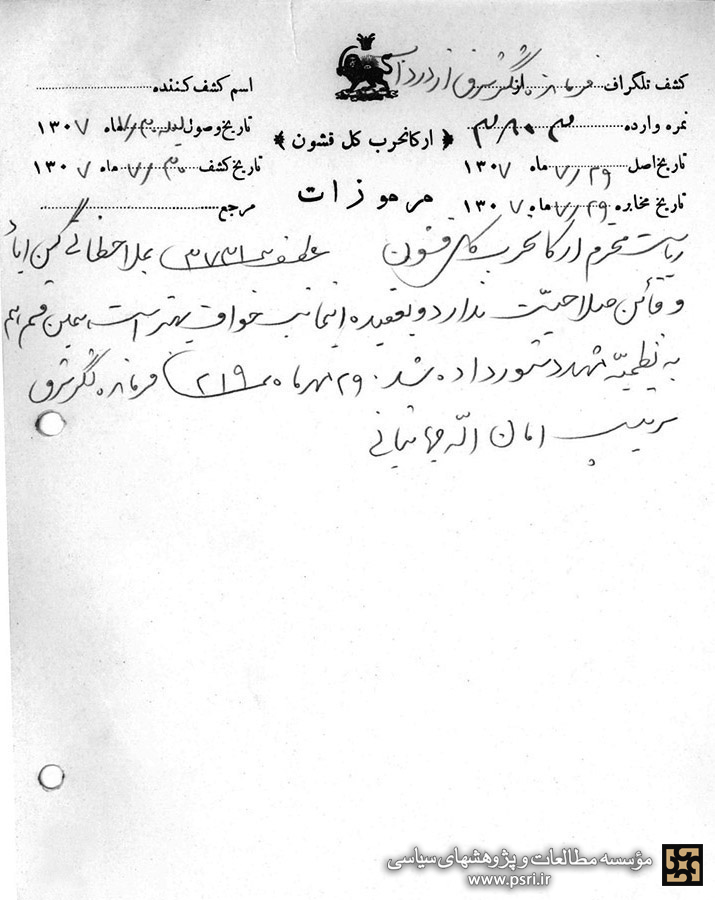 کشف تلگراف فرمانده لشگر شرق از دزداب
اسم کشف کننده
نمره وارده ۳۸۰۳
تاریخ وصول ۷/۳۰ ماه ۱۳۰۷
﴿ ارکانحرب کل قشون ﴾
تاریخ اصل ۷/۲۹ ماه ۱۳۰۷
تاریخ کشف ۷/۳۰ ماه ۱۳۰۷
مرموزات
تاریخ مخابره ۷/۲۹ ماه ۱۳۰۷
مرجع
ریاست محترم ارکانحرب کل قشون عطف ۳۷۳۱ بملاحظاتی
و قائن صلاحیت ندارد و بعقیده اینجانب خواف بهتر است همین قسم هم
به نظمیه مشهد دستور داده شد. ۲۹ مهر ماه ۲۱۹ فرمانده لشگر شرق
سرتیپ امان الله جهانبانی
مؤسسه مطالعات و پژوهشهای سیاسی
www.psri.ir